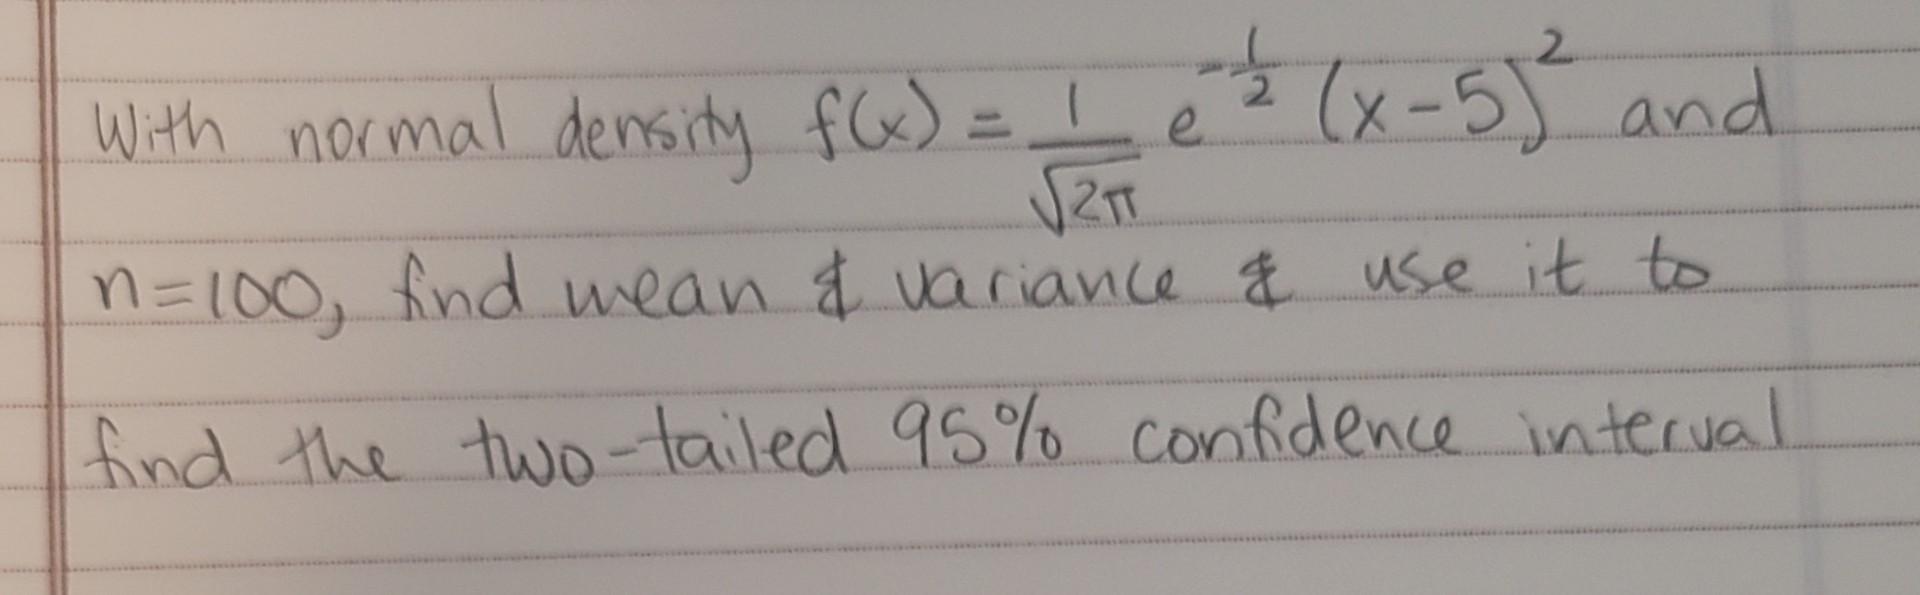 With normal density f(x) = 1/√2π e^-1/2 (x-5)² and
n=100, find mean & variance & use it to
find the two-tailed 95% confidence interval